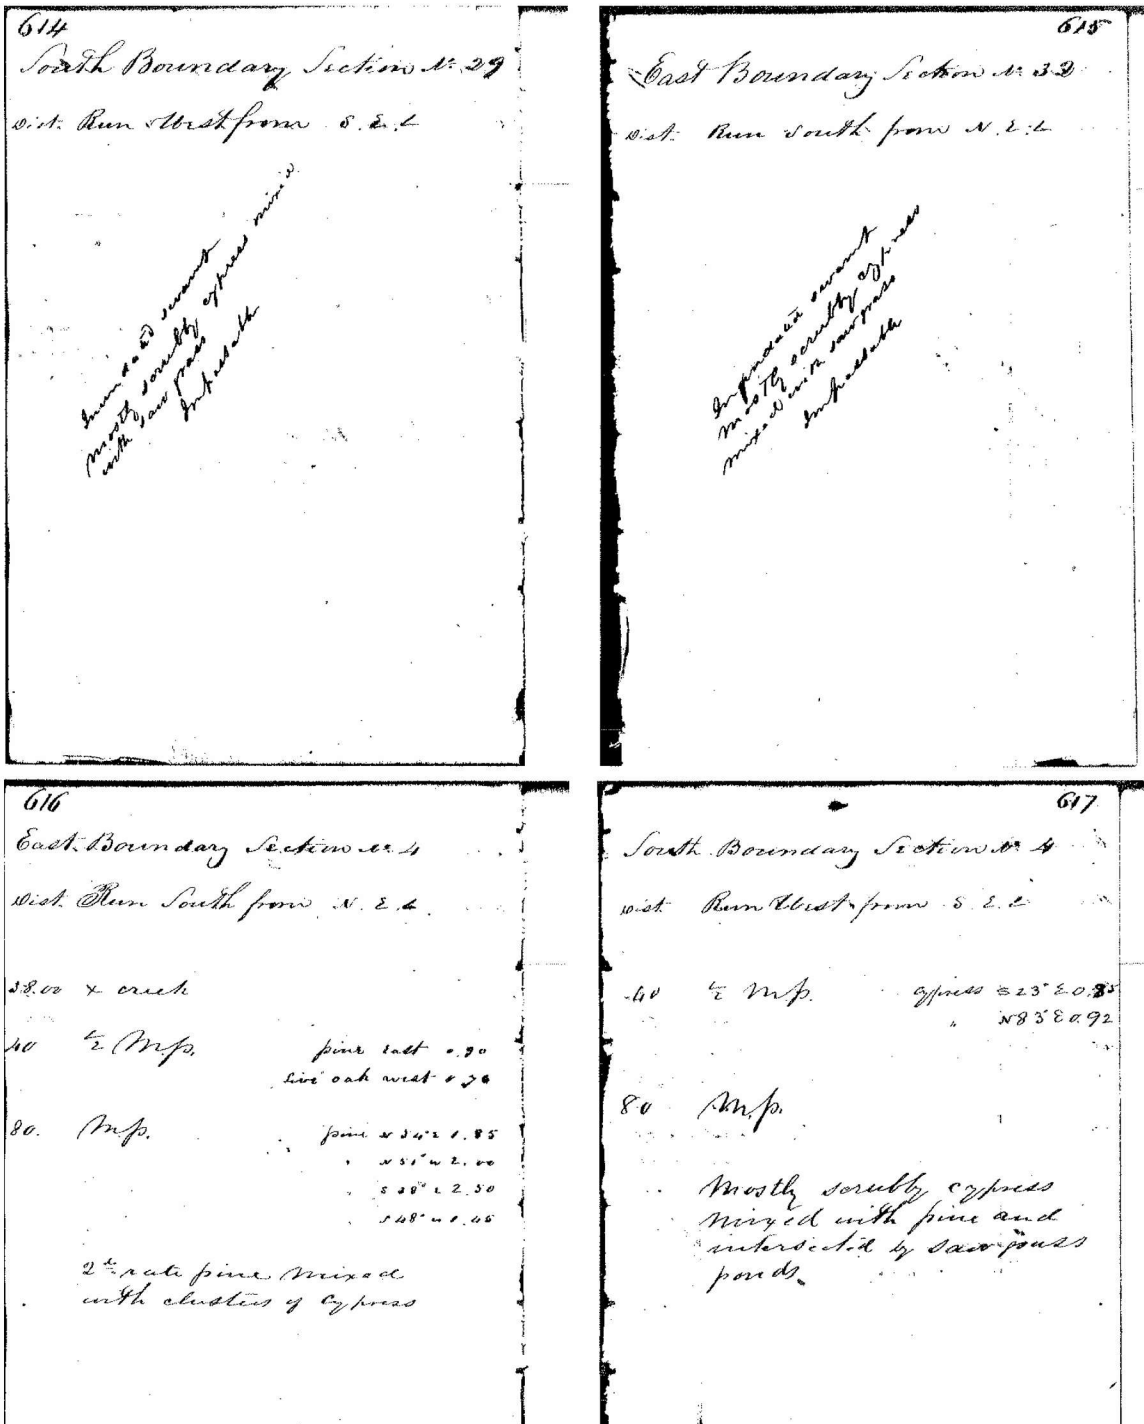 614
South Boundary Section No 29
Dist. Run West from S. E. C
Inundated swamp
mostly scrubby cypress mixed
with saw grass
Impassable
615
East Boundary Section No 33
Dist. Run South from N. E. C
Inundated swamp
mostly scrubby cypress
mixed with saw grass
Impassable
616
East Boundary Section No 4
Dist. Run South from N. E. C
38.00 x creek
40 ½ M.p. pine East 0.90
Live oak west
80. M.p. pine
2d rate pine mixed
with clusters of Cypress
617
South Boundary Section No 4
Dist Run West from S. E. C
40 ½ M.p. cypress S 23° E 0.85
" N 83° E 0.92
80 M.p.
Mostly scrubby cypress
mixed with pine and
intersected by Saw grass
ponds.